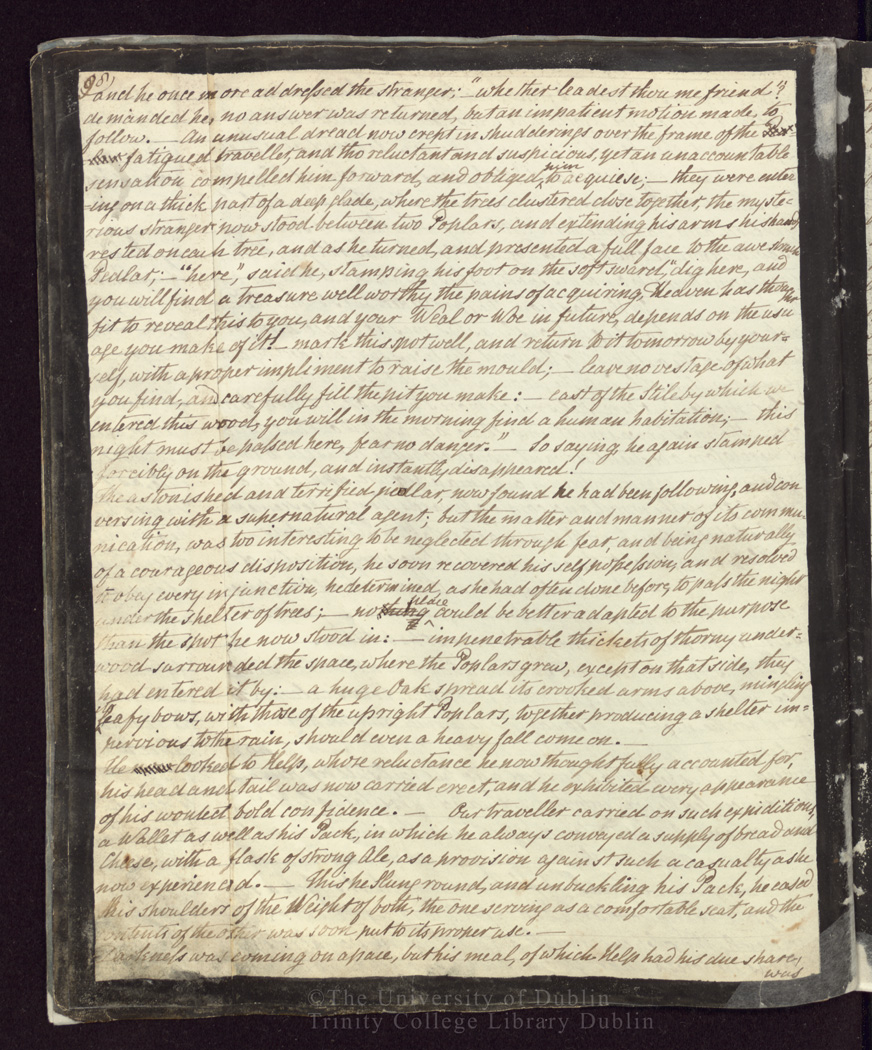 98)
and he once more addressed the stranger; "whether leadest thou me friend"?
demanded he, no answer was returned, but an impatient motion made, to
follow. — An unusual dread now crept in shudderings over the frame of the
fatigued traveller, and tho reluctant and suspicious, yet an unaccountable
sensation compelled him forward, and obliged him to acquiese; — they were enter-
-ing on a thick part of a deep glade, where the trees clustered close together, the myste=
rious stranger now stood between two Poplars, and extending his arms his hands
rested on each tree, and as he turned, and presented a full face to the awe struck
Pedlar; — "here", said he, stamping his foot on the soft sward, "dig here, and
you will find a treasure well worthy the pains of acquiring, Heaven has thought
fit to reveal this to you, and your Weal or Woe in future, depends on the usu
age you make of it! mark this spot well, and return to it tomorrow by your=
self, with a proper impliment to raise the mould; — leave no vestage of what
you find, and carefully fill the pit you make: — east of the Stile by which we
entered this wood, you will in the morning find a human habitation; — this
night must be passed here, fear no danger." — So saying he again stamped
forcibly on the ground, and instantly disappeared!
The astonished and terrified pedlar, now found he had been following, and con
versing with a supernatural agent; but the matter and manner of its commu-
nication, was too interesting to be neglected through fear, and being naturally
of a courageous disposition, he soon recovered his self possession, and resolved
to obey every injunction, he determined, as he had often done before, to pass the night
under the shelter of trees; — no place could be better adapted to the purpose
than the spot he now stood in: — impenetrable thickets of thorny under-
wood surrounded the space, where the Poplars grew, except on that side, they
had entered it by: — a huge Oak spread its crooked arms above, mingling
leafy bows, with those of the upright Poplars, together producing a shelter im=
pervious to the rain, should even a heavy fall come on. —
He looked to Help, whose reluctance he now thought fully accounted for,
his head and tail was now carried erect, and he exhibited every appearance
of his wontest bold confidence. — Our traveller carried on such expiditions,
a Wallet as well as his Pack, in which he always conveyed a supply of bread and
Chase, with a flask of strong Ale, as a provision against such a casualty as he
now experienced. — This he slung round, and unbuckling his Pack, he eased
his shoulders of the Weight of both, the one serving as a comfortable seat, and the
contents of the other was soon put to its proper use. —
Darkness was coming on apace, but his meal, of which Help had his due share,
was
©The University of Dublin
Trinity College Library Dublin